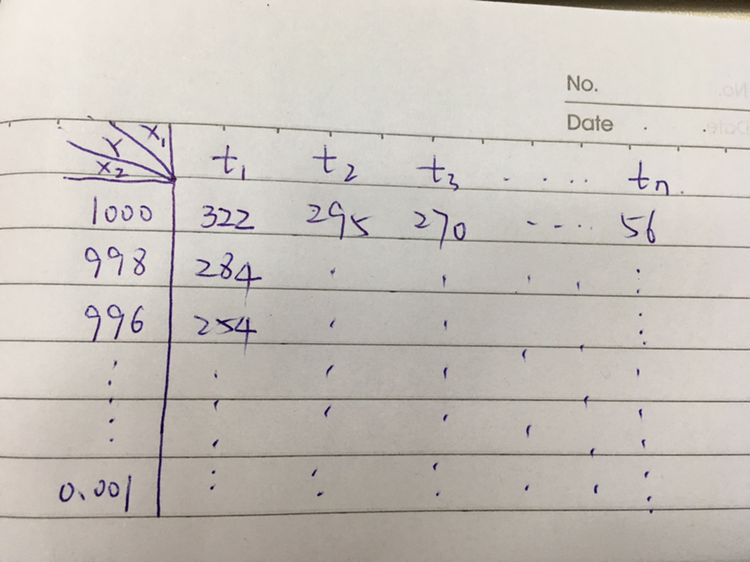 No.
Date . .
X₁
Y
X₂ t₁ t₂ t₃ ..... tₙ.
1000 322 295 270 ----- 56
998 284
996 254
0.001